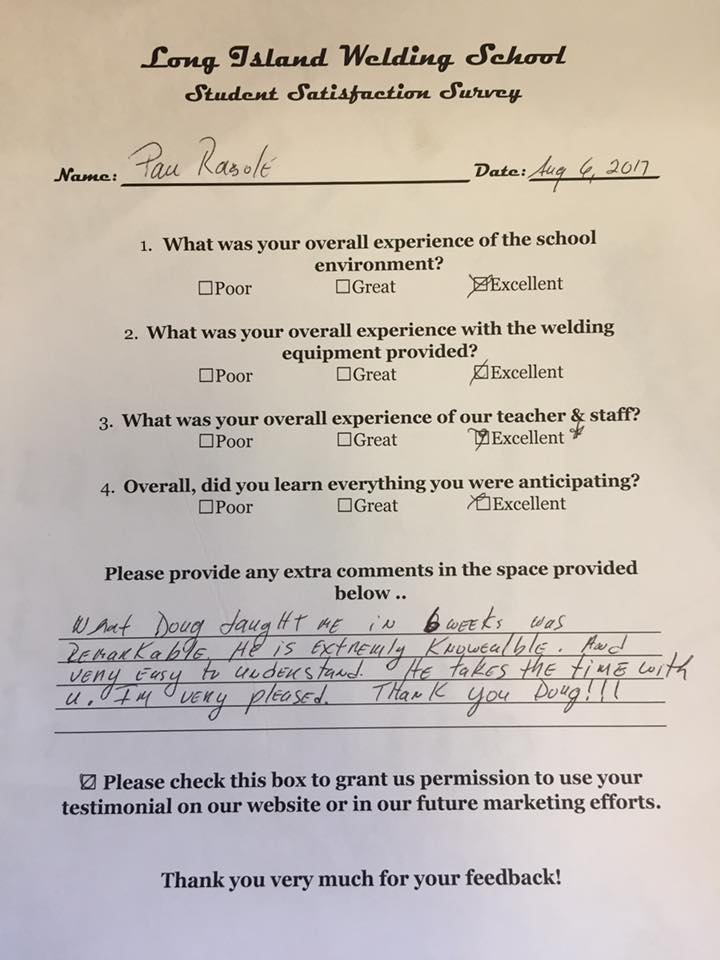 Long Island Welding School
Student Satisfaction Survey
Name: Pau Rasole Date: Aug 6, 2017
1. What was your overall experience of the school
environment?
☐Poor ☐Great ☒Excellent
2. What was your overall experience with the welding
equipment provided?
☐Poor ☐Great ☑Excellent
3. What was your overall experience of our teacher & staff?
☐Poor ☐Great ☑Excellent *
4. Overall, did you learn everything you were anticipating?
☐Poor ☐Great ☒Excellent
Please provide any extra comments in the space provided
below ..
What Doug taught me in 6 weeks was
Remarkable, He is extremly Knowealble. And
very easy to understand. He takes the time with
u. Im very pleased. Thank you Doug!!!
☑ Please check this box to grant us permission to use your
testimonial on our website or in our future marketing efforts.
Thank you very much for your feedback!